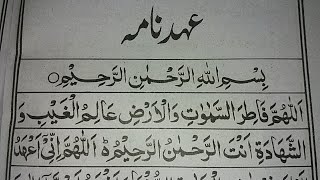 عہد نامہ
بِسْمِ اللهِ الرَّحْمٰنِ الرَّحِيْمِ○
اَللّٰهُمَّ فَاطِرَ السَّمٰوٰتِ وَالْاَرْضِ عَالِمُ الْغَيْبِ وَ
الشَّهَادَةِ اَنْتَ الرَّحْمٰنُ الرَّحِيْمُ ط اَللّٰهُمَّ اِنِّيْ اَعْهَدُ